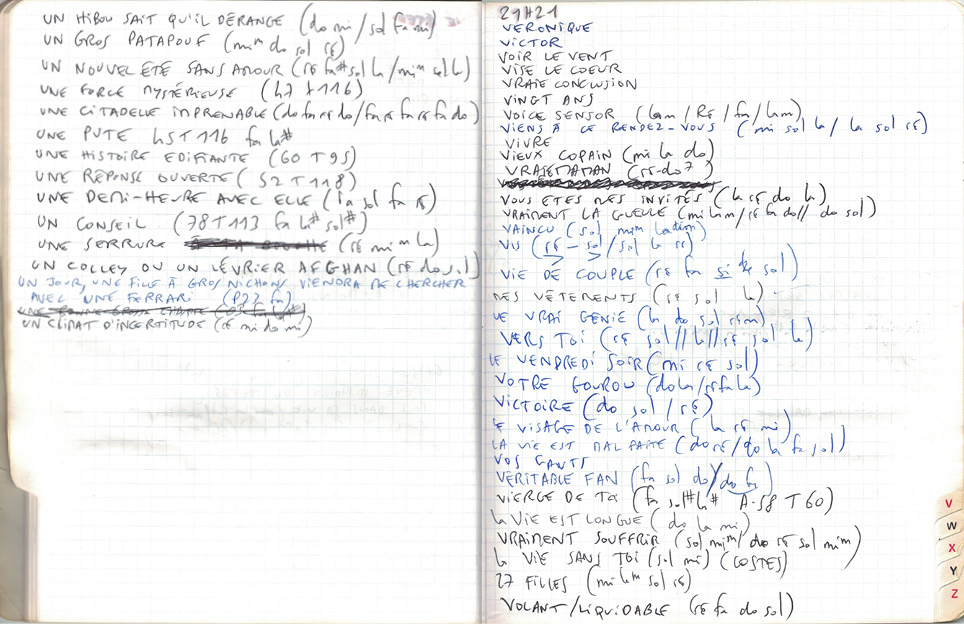 UN HIBOU SAIT QU'IL DÉRANGE (do mi / sol fa mi)
UN GROS PATAPOUF (mim do sol ré)
UN NOUVEL ÉTÉ SANS AMOUR (ré fa# sol la / mim sol la)
UNE FORCE MYSTÉRIEUSE (47 T 116)
UNE CITADELLE IMPRENABLE (do fa ré do / fa ré fa ré fa do)
UNE PUTE 45 T 116 fa la#
UNE HISTOIRE EDIFIANTE (60 T 95)
UNE RÉPONSE OUVERTE (52 T 118)
UNE DEMI-HEURE AVEC ELLE (la sol fa ré)
UN CONSEIL (78 T 113 fa la# sol#)
UNE SERRURE (ré mim la)
UN COLLEY OU UN LÉVRIER AFGHAN (ré do sol)
UN JOUR, UNE FILLE À GROS NICHONS VIENDRA ME CHERCHER
AVEC UNE FERRARI (P22 fa)
UN CLIMAT D'INCERTITUDE (ré mi do mi)
21H21
VERONIQUE
VICTOR
VOIR LE VENT
VISE LE COEUR
VRAIE CONCLUSION
VINGT ANS
VOICE SENSOR (lam / Ré / fa / lam)
VIENS À CE RENDEZ-VOUS (mi sol la / la sol ré)
VIVRE
VIEUX COPAIN (mi la do)
VRAIMAMAN (ré-do7)
VOUS ETES MES INVITÉS (la ré do la)
VRAIMENT LA GUEULE (mi lam / ré fa do // do sol)
VAINCU (sol mim la)
VU (ré - sol / sol la ré)
VIE DE COUPLE (ré fa si sol)
MES VÊTEMENTS (ré sol la)
LE VRAI GÉNIE (la do sol rém)
VERS TOI (ré sol // la // ré sol la)
LE VENDREDI SOIR (mi ré sol)
VOTRE GOUROU (do la / ré fa la)
VICTOIRE (do sol / ré)
LE VISAGE DE L'AMOUR (la ré mi)
LA VIE EST MAL FAITE (do ré / do la fa sol)
VOS GANTS
VÉRITABLE FAN (fa sol do / do fa)
VIERGE DE TOI (fa sol# la# A-58 T 60)
LA VIE EST LONGUE (do la mi)
VRAIMENT SOUFFRIR (sol mim / do ré sol mim)
LA VIE SANS TOI (sol mi) (COSTES)
27 FILLES (mi lam sol ré)
VOLANT/LIQUIDABLE (ré fa do sol)
V
W
X
Y
Z